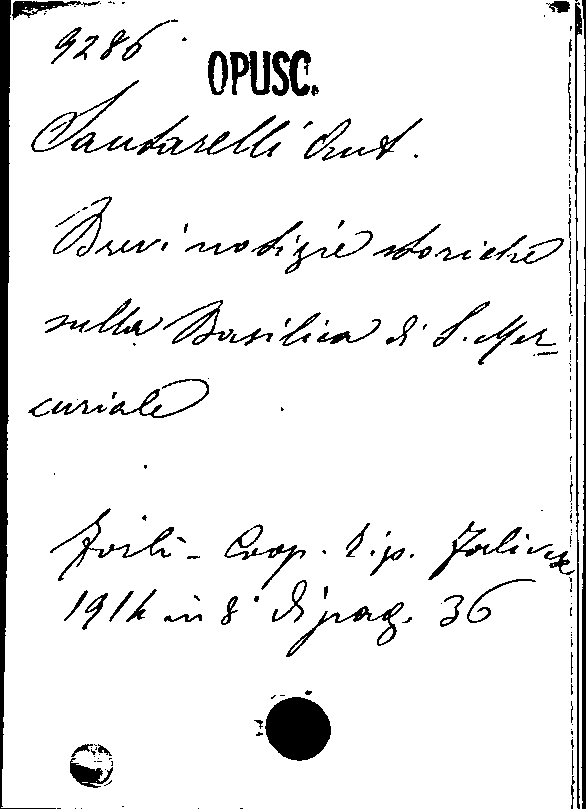 9286
OPUSC.
Santarelli Ant.
Brevi notizie storiche
sulla Basilica di S. Mer-
curiale
Forlì - Coop. Tip. Forlivese
1914 in 8° di pag. 36